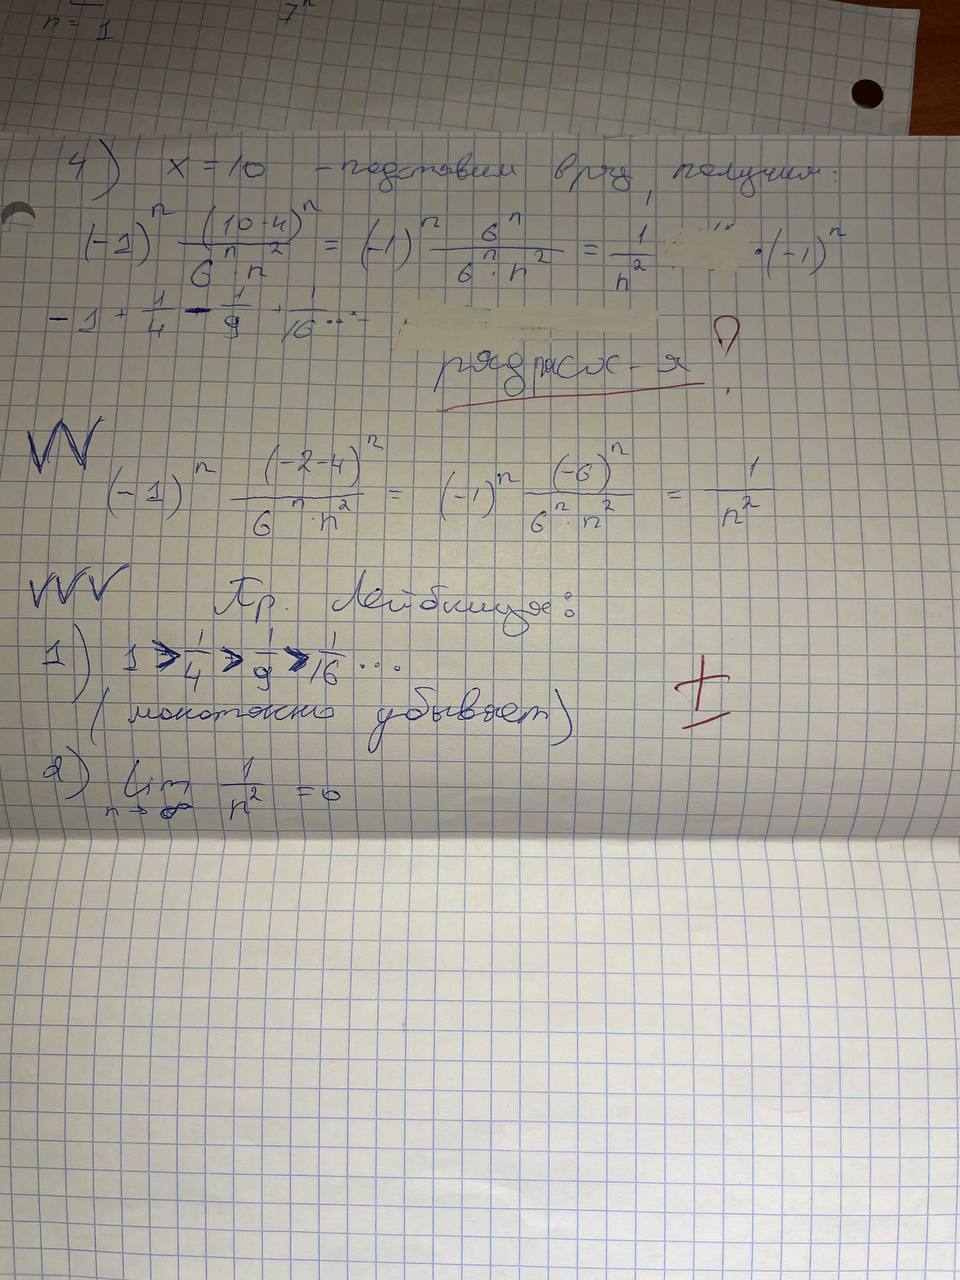 n = 1 7ⁿ
4) x = 10 - подставим в ряд, получим:
(-1)ⁿ (10-4)ⁿ / 6ⁿ·n² = (-1)ⁿ 6ⁿ / 6ⁿ·n² = 1/n² ·(-1)ⁿ
-1 + 1/4 - 1/9 + 1/16 ...
ряд расх-я !
VV
(-1)ⁿ (-2-4)ⁿ / 6ⁿ·n² = (-1)ⁿ (-6)ⁿ / 6ⁿ·n² = 1/n²
VVV Пр. Лейбница:
1) 1 > 1/4 > 1/9 > 1/16 ...
(монотонно убывает) ±
2) lim n→∞ 1/n² = 0